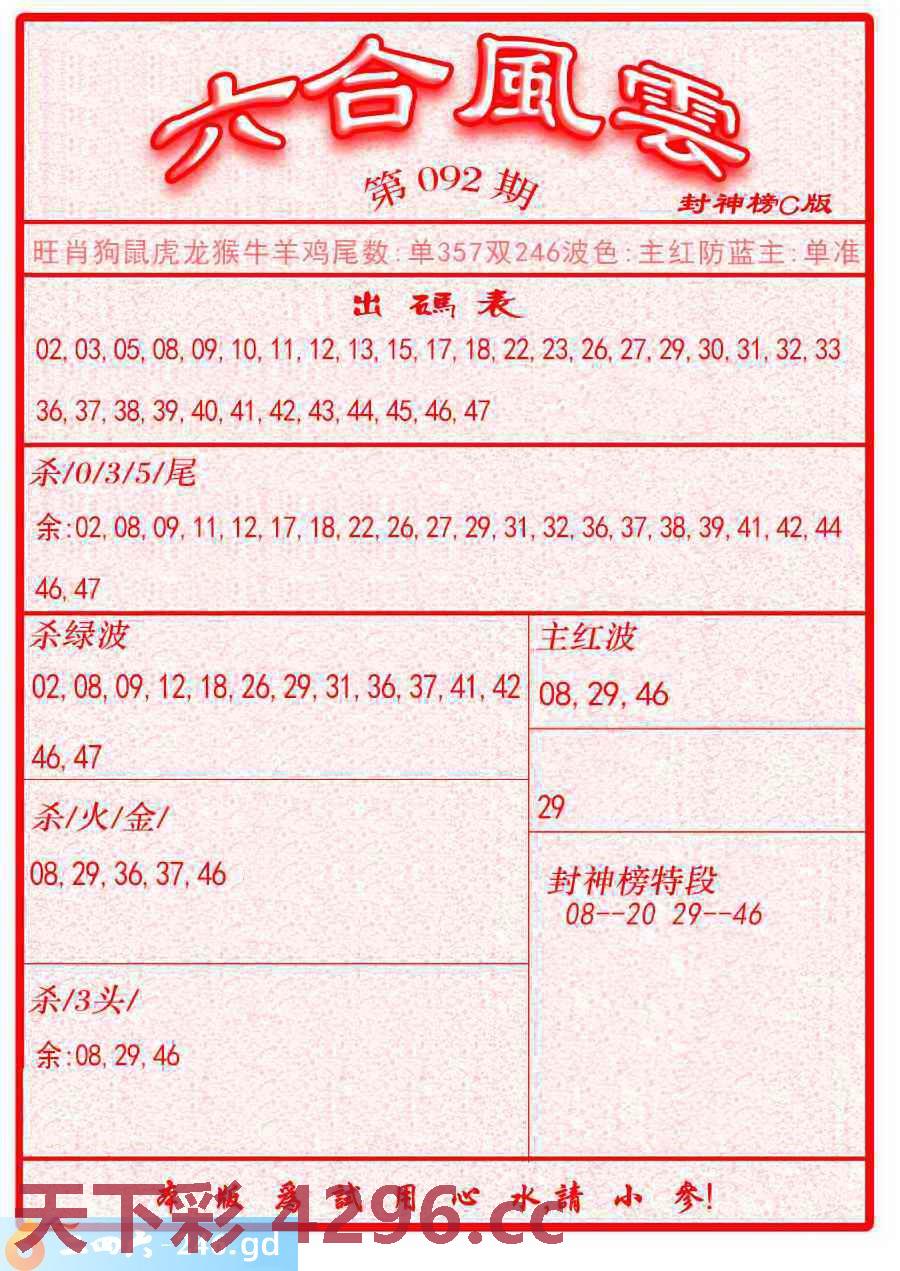 六合風雲
第092期
封神榜C版
旺肖狗鼠虎龙猴牛羊鸡尾数:单357双246波色:主红防蓝主:单准
出碼表
02,03,05,08,09,10,11,12,13,15,17,18,22,23,26,27,29,30,31,32,33
36,37,38,39,40,41,42,43,44,45,46,47
杀/0/3/5/尾
余:02,08,09,11,12,17,18,22,26,27,29,31,32,36,37,38,39,41,42,44
46,47
杀绿波
02,08,09,12,18,26,29,31,36,37,41,42
46,47
主红波
08,29,46
29
杀/火/金/
08,29,36,37,46
封神榜特段
08--20 29--46
杀/3头/
余:08,29,46
本版爲試用心水,請小參!
天下彩 4296.cc
246.gd